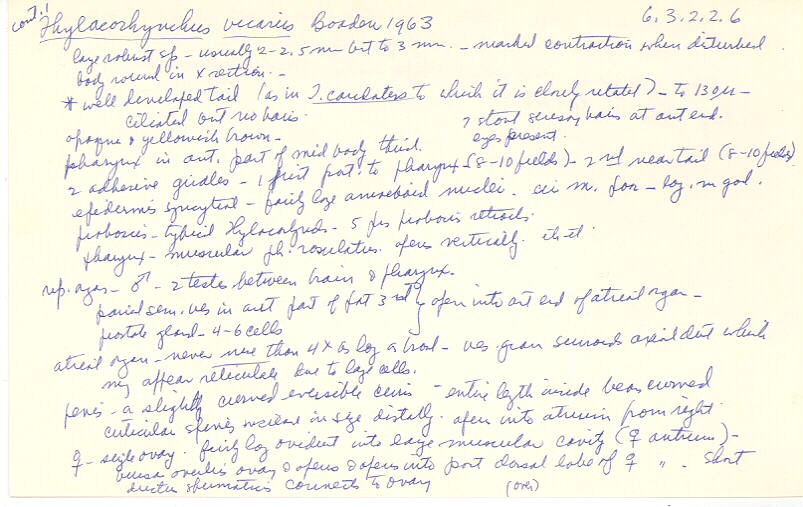 cont.! Thylacorhynchus vicarius Boaden 1963 6.3.2.2.6
large robust sp - usually 2-2.5 mm but to 3 mm. - marked contraction when disturbed.
body round in x section. -
* well developed tail (as in T. caudatus to which it is closely related) - to 130 µ -
ciliated but no hairs. ? stout sensory hairs at ant end.
opaque & yellowish brown - eyes present.
pharynx in ant. part of mid body third.
2 adhesive girdles - 1 just post. to pharynx (8-10 fields) - 2nd near tail (8-10 fields)
epidermis syncytial - fairly large amoeboid nuclei. cir m. for - long. m god.
proboscis - typical Thylacorhynch - 5 prs proboscis retracts.
pharynx - muscular ph. rosulatus. opens vertically.
rep. organs - ♂ - 2 testes between brain & pharynx.
paired sem. ves in ant part of post 3rd } open into ant end of atrial organ -
prostate gland - 4-6 cells
atrial organ - never more than 4x as long as broad - ves. gran surrounds axial duct which
may appear reticulate due to large cells.
penis - a slightly curved eversible cirrus - entire length inside bears curved
cuticular spines increase in size distally. open into atrium from right.
♀ - single ovary. fairly long oviduct into large muscular cavity (♀ antrum) -
bursa overlies ovary & opens into post dorsal lobe of ♀ " . Short
ductus spermaticus connects to ovary (over)